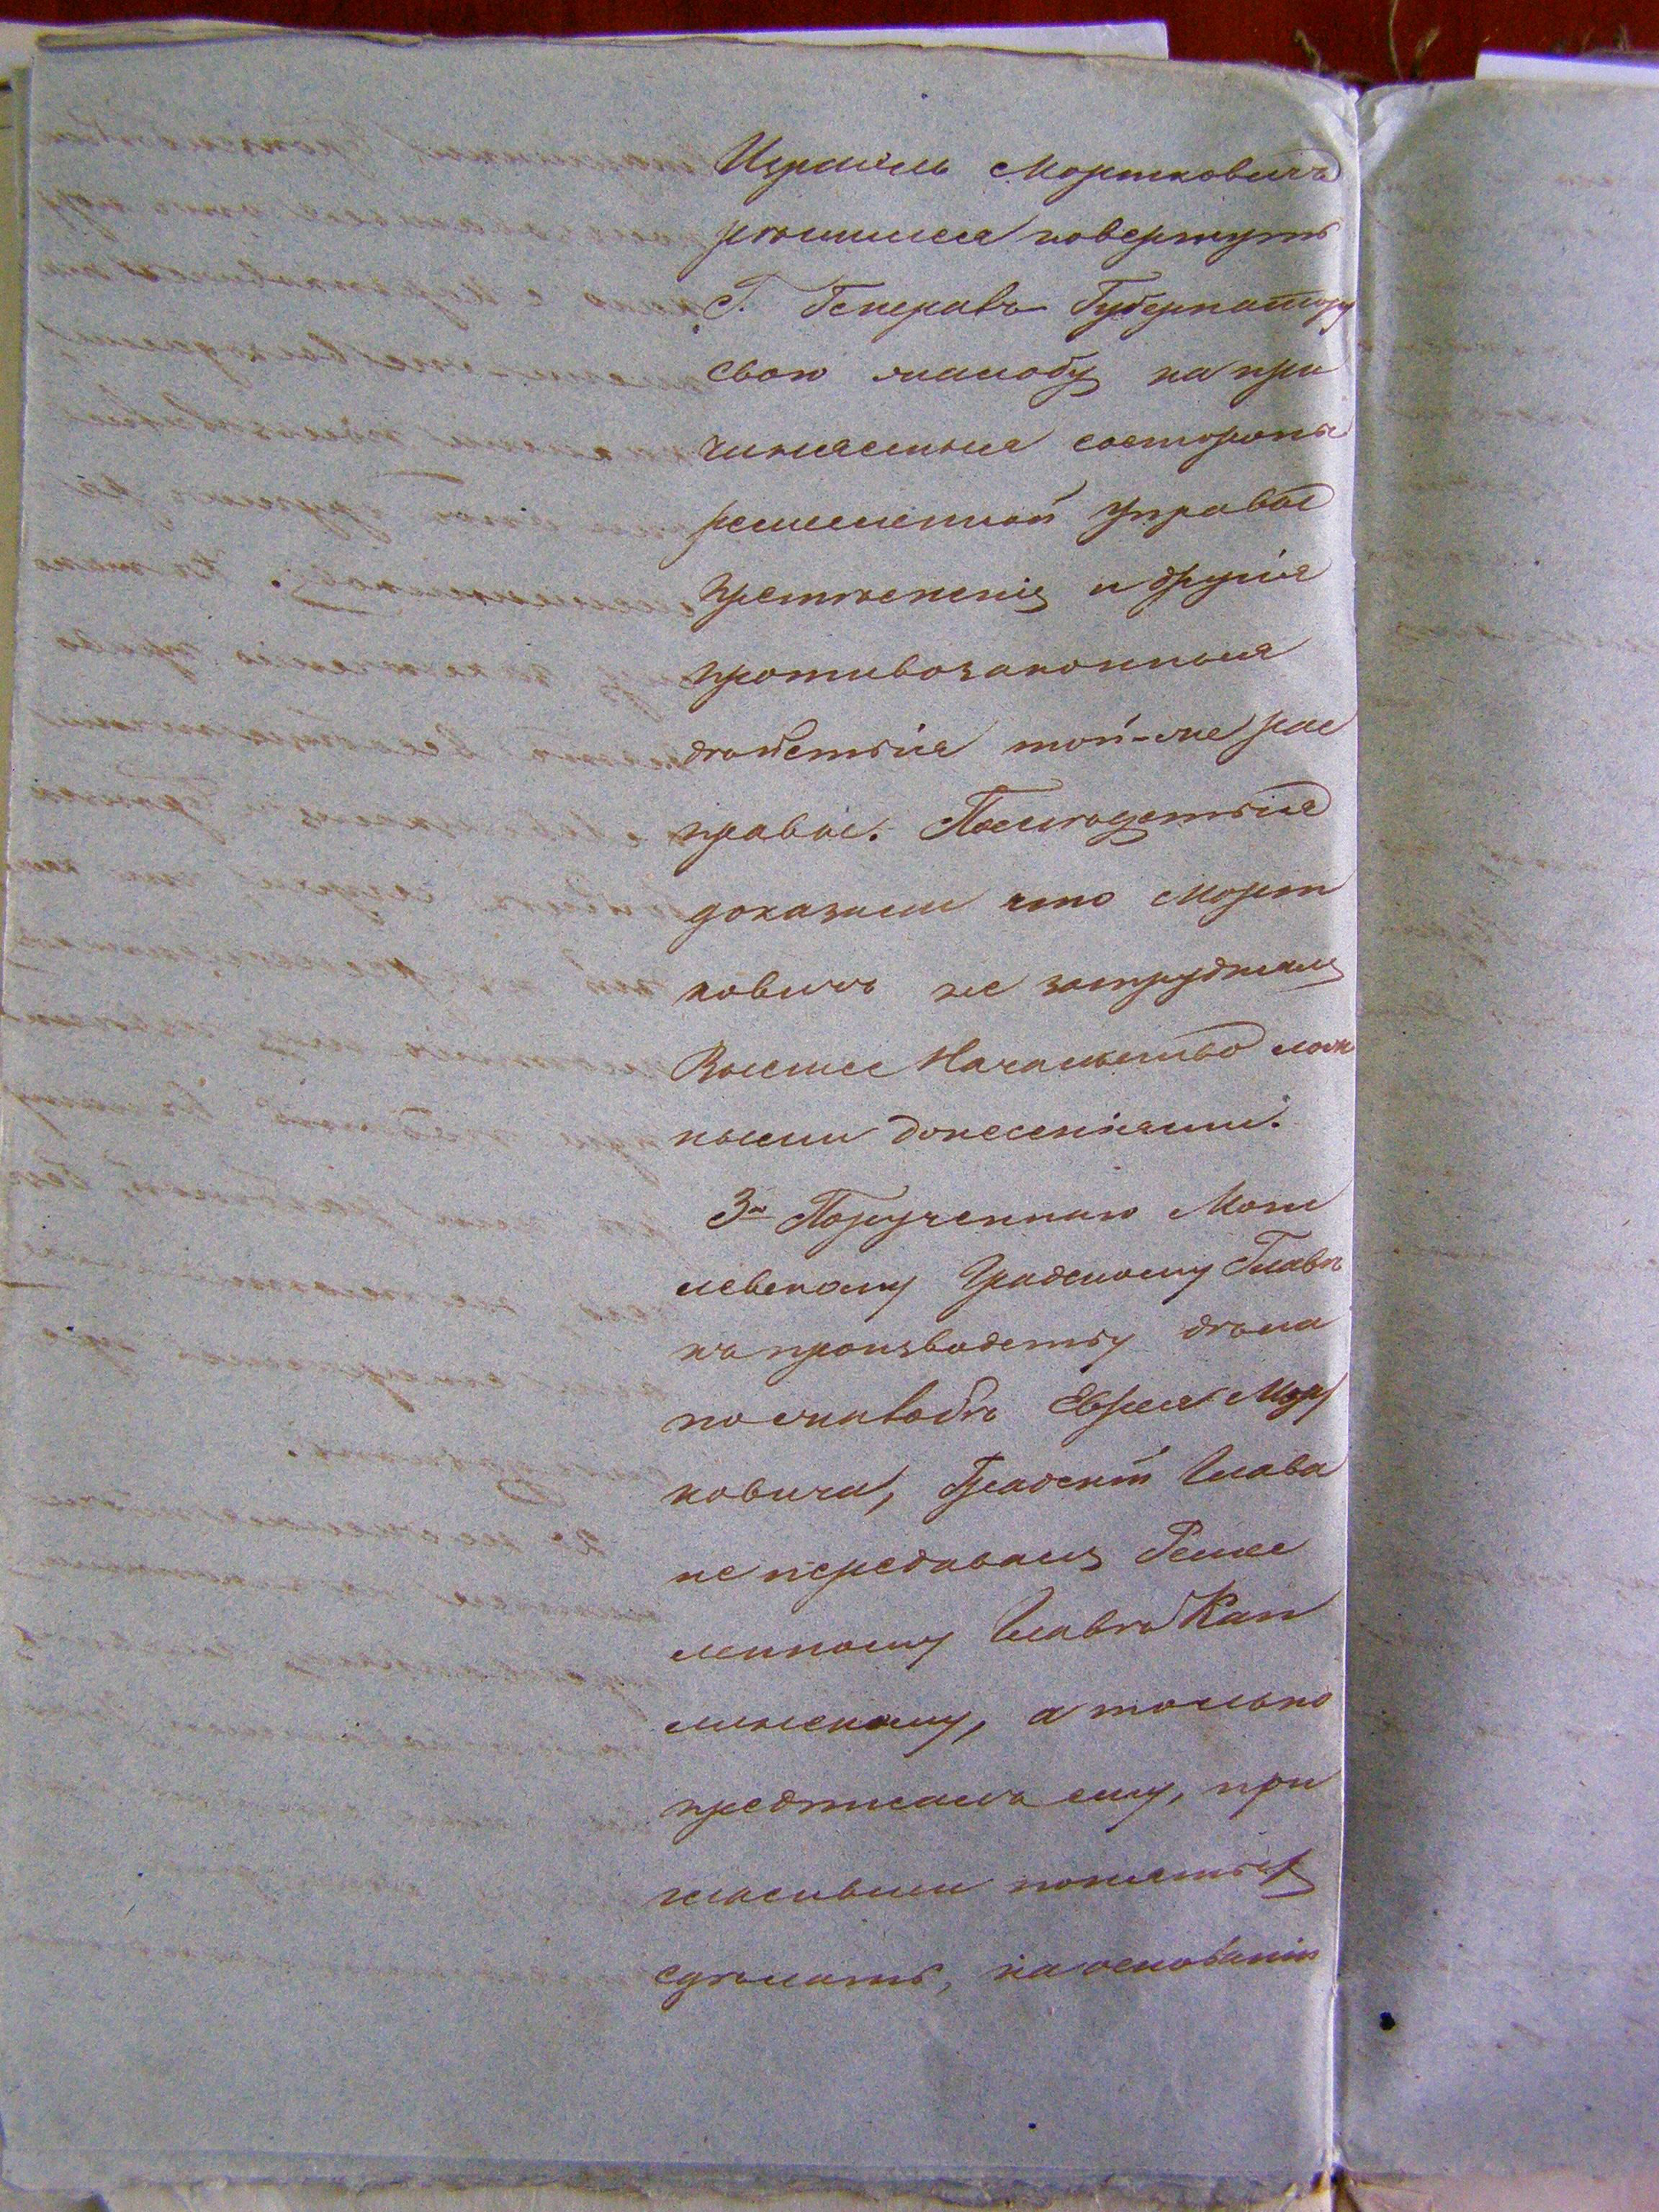 Израиль Мортковичъ
решился повергнуть
Г. Генералъ Губернатору
свою жалобу на при
чиняемыя состороны
ремесленной управы
притѣсненія и другія
противозаконныя
дѣйствія той-же рас
правы. Послѣдствія
доказали что Морт
ковичъ не затруднялъ
Высшее Начальство лож
ными донесеніями.
3е Порученную Моги
левскому Градскому Главѣ
къ производству дѣла
по жалобѣ Еврея Морт
ковича, Градскій Глава
не передавалъ Ремес
ленному Главѣ Кап
линскому, а только
предписалъ ему, при
гласивши понятыхъ
сдѣлать, на основаніи